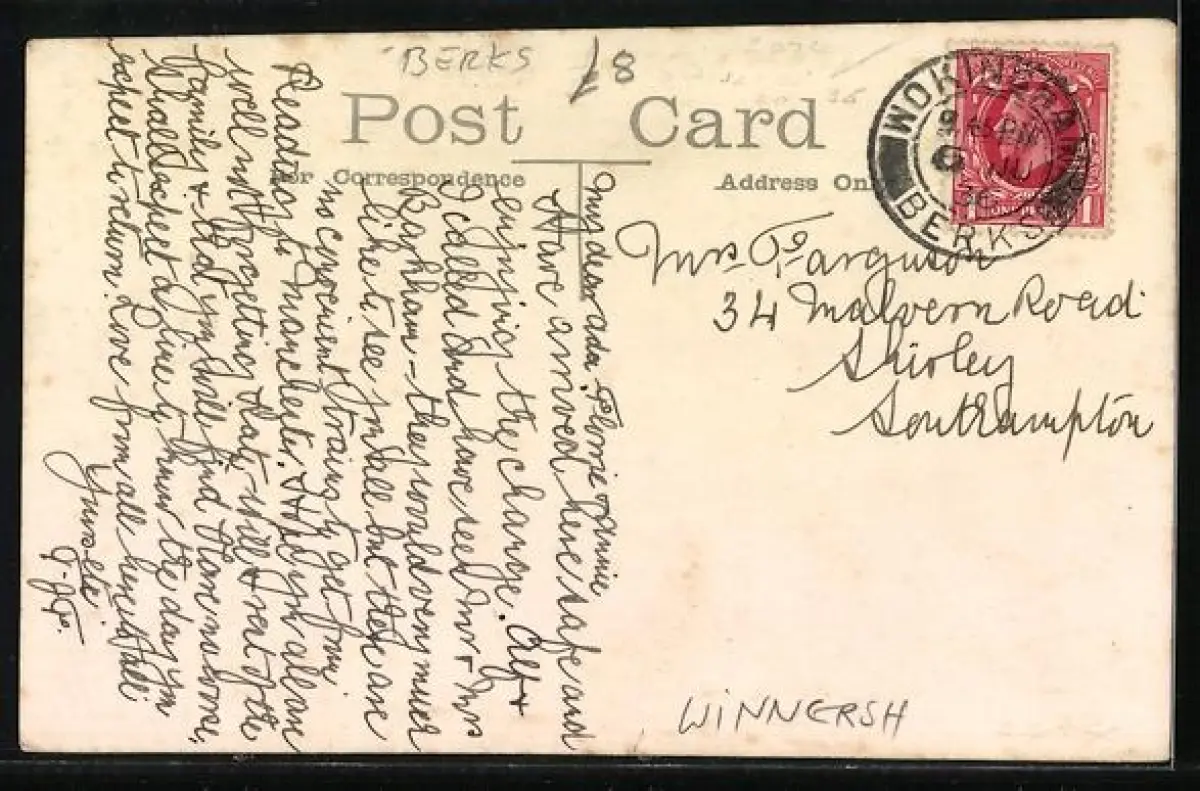 BERKS
/8
Post Card
For Correspondence
Address Only
WOKINGHAM
BERKS
PM
JU
36
1
1
Mrs. F. Farguson
34 Malvern Road
Shirley
Southampton
WINNERSH
My dear ada Florrie & Annie
Have arrived here safe and
enjoying the change. Alf &
I called and have seen Mr & Mrs
Barkham - they would very much
like to see you all but there are
no convenient trains to get from
Reading to Hope you all are
well not forgetting Will & rest of the
family & Dad you will find Home no worse,
shall expect a line to know the day you
expect to return. Love from all here
Yours etc